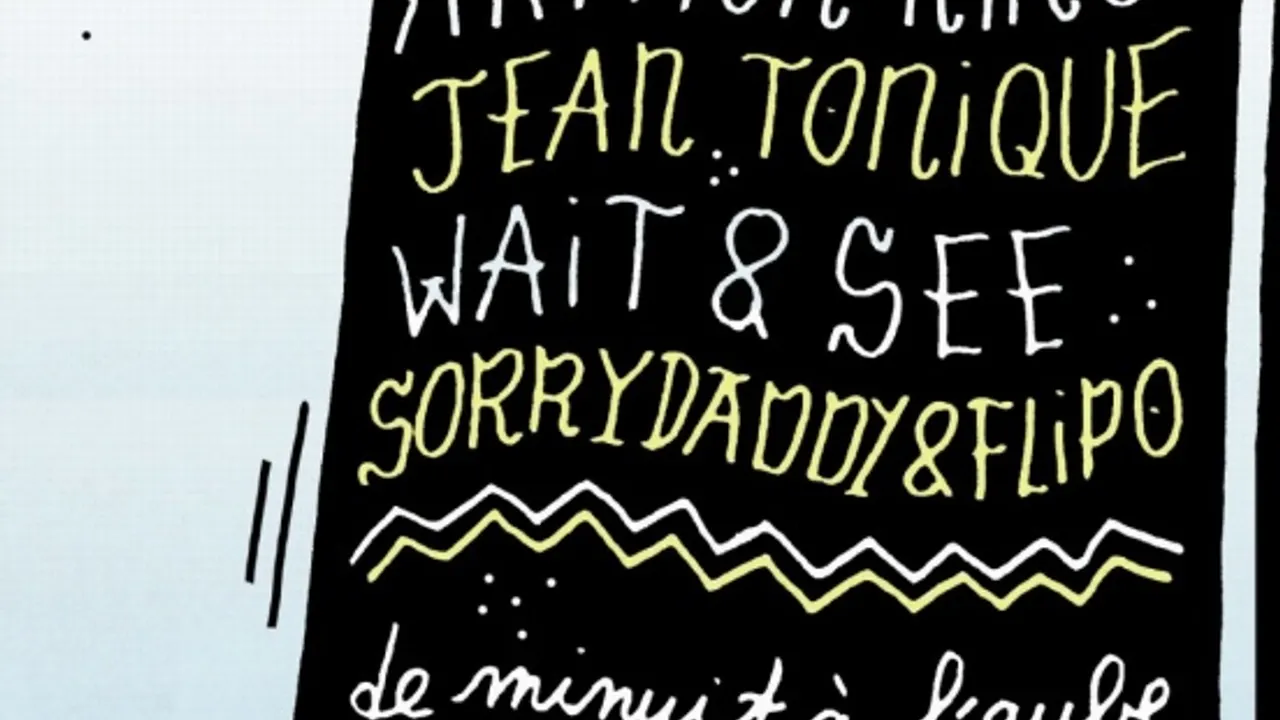 JEAN TONiQUE
WAiT & SEE
SORRYDADDY&FLiPO
de minuit à l'aube